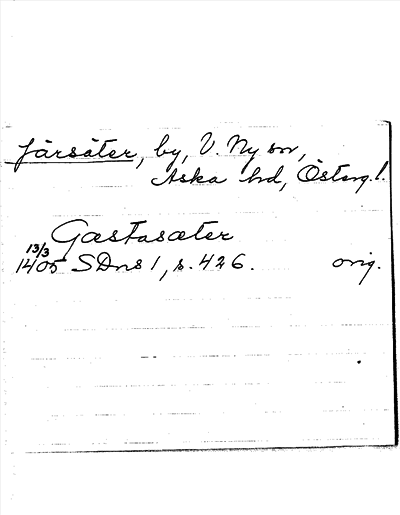 Järsäter, by, V. Ny sn,
Aska hd, Österg. l.
Gastasæter
13/3
1405 SDns 1, s. 426. orig.